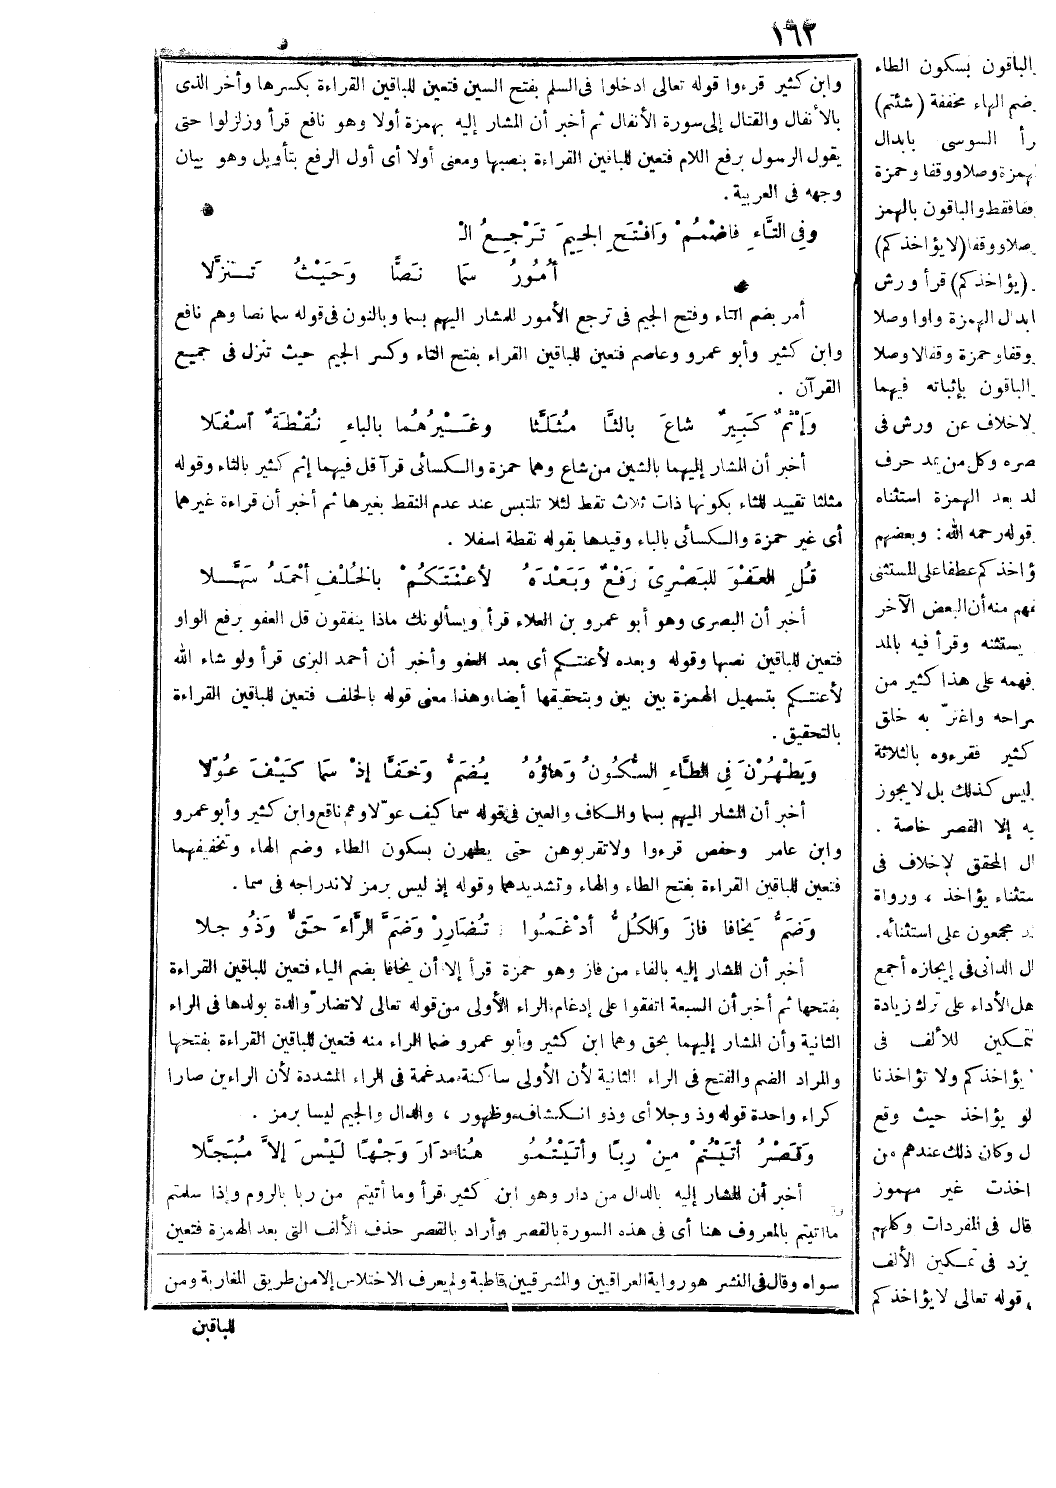 ١٦٢
وابن كثير قرءوا قوله تعالى ادخلوا فى السلم بفتح السين فتعين للباقين القراءة بكسرها وأخر الذى
بالأنفال والقتال إلى سورة الأنفال ثم أخبر أن المشار إليه بهمزة أولا وهو نافع قرأ وزلزلوا حتى
يقول الرسول برفع اللام فتعين للباقين القراءة بنصبها ومعنى أولا أى أول الرفع بتأويل وهو بيان
وجهه فى العربية .
وفِى التَّاءِ فاضْمُمْ وَافْتَحِ الجِيمَ تَرْجِعُ الْـ
أُمُورُ سَمَا نَصًّا وَحَيْثُ تَنَزَّلَا
أمر بضم التاء وفتح الجيم فى ترجع الأمور للمشار اليهم بسما وبالنون فى قوله سما نصا وهم نافع
وابن كثير وأبو عمرو وعاصم فتعين للباقين القراء بفتح التاء وكسر الجيم حيث تنزل فى جميع
القرآن .
وَإثْمٌ كَبِيرٌ شاعَ بالثَّا مُثَلَّثًا وغَيْرُهُما بالباءِ نُقْطَةٌ اسْفَلَا
أخبر أن المشار إليهما بالشين من شاع وهما حمزة والكسائى قرآ قل فيهما إثم كثير بالثاء وقوله
مثلثا تقييد للثاء بكونها ذات ثلاث نقط لئلا تلتبس عند عدم النقط بغيرها ثم أخبر أن قراءة غيرهما
أى غير حمزة والكسائى بالباء وقيدها بقوله نقطة اسفلا .
قُلِ العَفْوَ للبَصْرِىّ رَفْعٌ وَبَعْدَهُ لأعْنَتَكُمْ بالخُلْفِ أحْمَدُ سَهَّلا
أخبر أن البصرى وهو أبو عمرو بن العلاء قرأ ويسألونك ماذا ينفقون قل العفو برفع الواو
فتعين للباقين نصبها وقوله وبعده لأعنتكم أى بعد العفو وأخبر أن أحمد البزى قرأ ولو شاء الله
لأعنتكم بتسهيل الهمزة بين بين وبتحقيقها أيضا وهذا معنى قوله بالخلف فتعين للباقين القراءة
بالتحقيق .
وَيَطْهُرْنَ فِى الطَّاءِ السُّكُونُ وَهَاؤُهُ يُضَمُّ وَخَفَّا إذْ سَمَا كَيْفَ عُوّلا
أخبر أن المشار اليهم بسما والكاف والعين فى قوله سما كيف عوّلا وهم نافع وابن كثير وأبو عمرو
وابن عامر وحفص قرءوا ولا تقربوهن حتى يطهرن بسكون الطاء وضم الهاء وتخفيفهما
فتعين للباقين القراءة بفتح الطاء والهاء وتشديدهما وقوله إذ ليس برمز لاندراجه فى سما .
وَضَمُّ يَخافا فازَ وَالكُلُّ أدْغَمُوا تُضَارِرْ وَضَمَّ الرَّاءَ حَقٌّ وَذُو جلا
أخبر أن المشار إليه بالفاء من فاز وهو حمزة قرأ إلا أن يخافا بضم الياء فتعين للباقين القراءة
بفتحها ثم أخبر أن السبعة اتفقوا على إدغام الراء الأولى من قوله تعالى لا تضارّ والدة بولدها فى الراء
الثانية وأن المشار إليهما بحق وهما ابن كثير وأبو عمرو ضما الراء منه فتعين للباقين القراءة بفتحها
والمراد الضم والفتح فى الراء الثانية لأن الأولى ساكنة مدغمة فى الراء المشددة لأن الراءين صارا
كراء واحدة قوله وذو جلا أى وذو انكشاف وظهور ، والدال والجيم ليسا برمز .
وَقَصْرُ أتَيْتُمْ مِنْ رِبًا وأتَيْتُمُو هُنا دَارَ وَجْهًا لَيْسَ إلاَّ مُبَجَّلا
أخبر أن المشار إليه بالدال من دار وهو ابن كثير قرأ وما أتيتم من ربا بالروم وإذا سلمتم
ما أتيتم بالمعروف هنا أى فى هذه السورة بالقصر وأراد بالقصر حذف الألف التى بعد الهمزة فتعين
سواه وقال فى النشر هو رواية العراقيين والمشرقيين قاطبة ولم يعرف الاختلاس إلا من طريق المغاربة ومن
للباقين
والباقون بسكون الطاء
وضم الهاء مخففة (شئتم)
رأ السوسى بابدال
همزة وصلا ووقفا وحمزة
قفا فقط والباقون بالهمز
وصلا ووقفا (لا يؤاخذكم)
(يؤاخذكم) قرأ ورش
ابدال الهمزة واوا وصلا
وقفا وحمزة وقفا لا وصلا
والباقون بإثباته فيهما
لا خلاف عن ورش فى
صره وكل من يمد حرف
لد بعد الهمزة استثناه
قوله رحمه الله : وبعضهم
ؤاخذكم عطفا على المستثنى
فهم منه أن البعض الآخر
يستثنه وقرأ فيه بالمد
فهمه على هذا كثير من
شراحه واغترّ به خلق
كثير فقرءوه بالثلاثة
وليس كذلك بل لا يجوز
يه إلا القصر خاصة .
ال المحقق لاخلاف فى
ستثناء يؤاخذ ، ورواة
د مجمعون على استثنائه.
ال الدانى فى إيجازه أجمع
هل الأداء على ترك زيادة
تمكين للألف فى
يؤاخذكم ولا تؤاخذنا
لو يؤاخذ حيث وقع
ل وكان ذلك عندهم من
اخذت غير مهموز
قال فى المفردات وكلهم
يزد فى تمكين الألف
، قوله تعالى لا يؤاخذكم